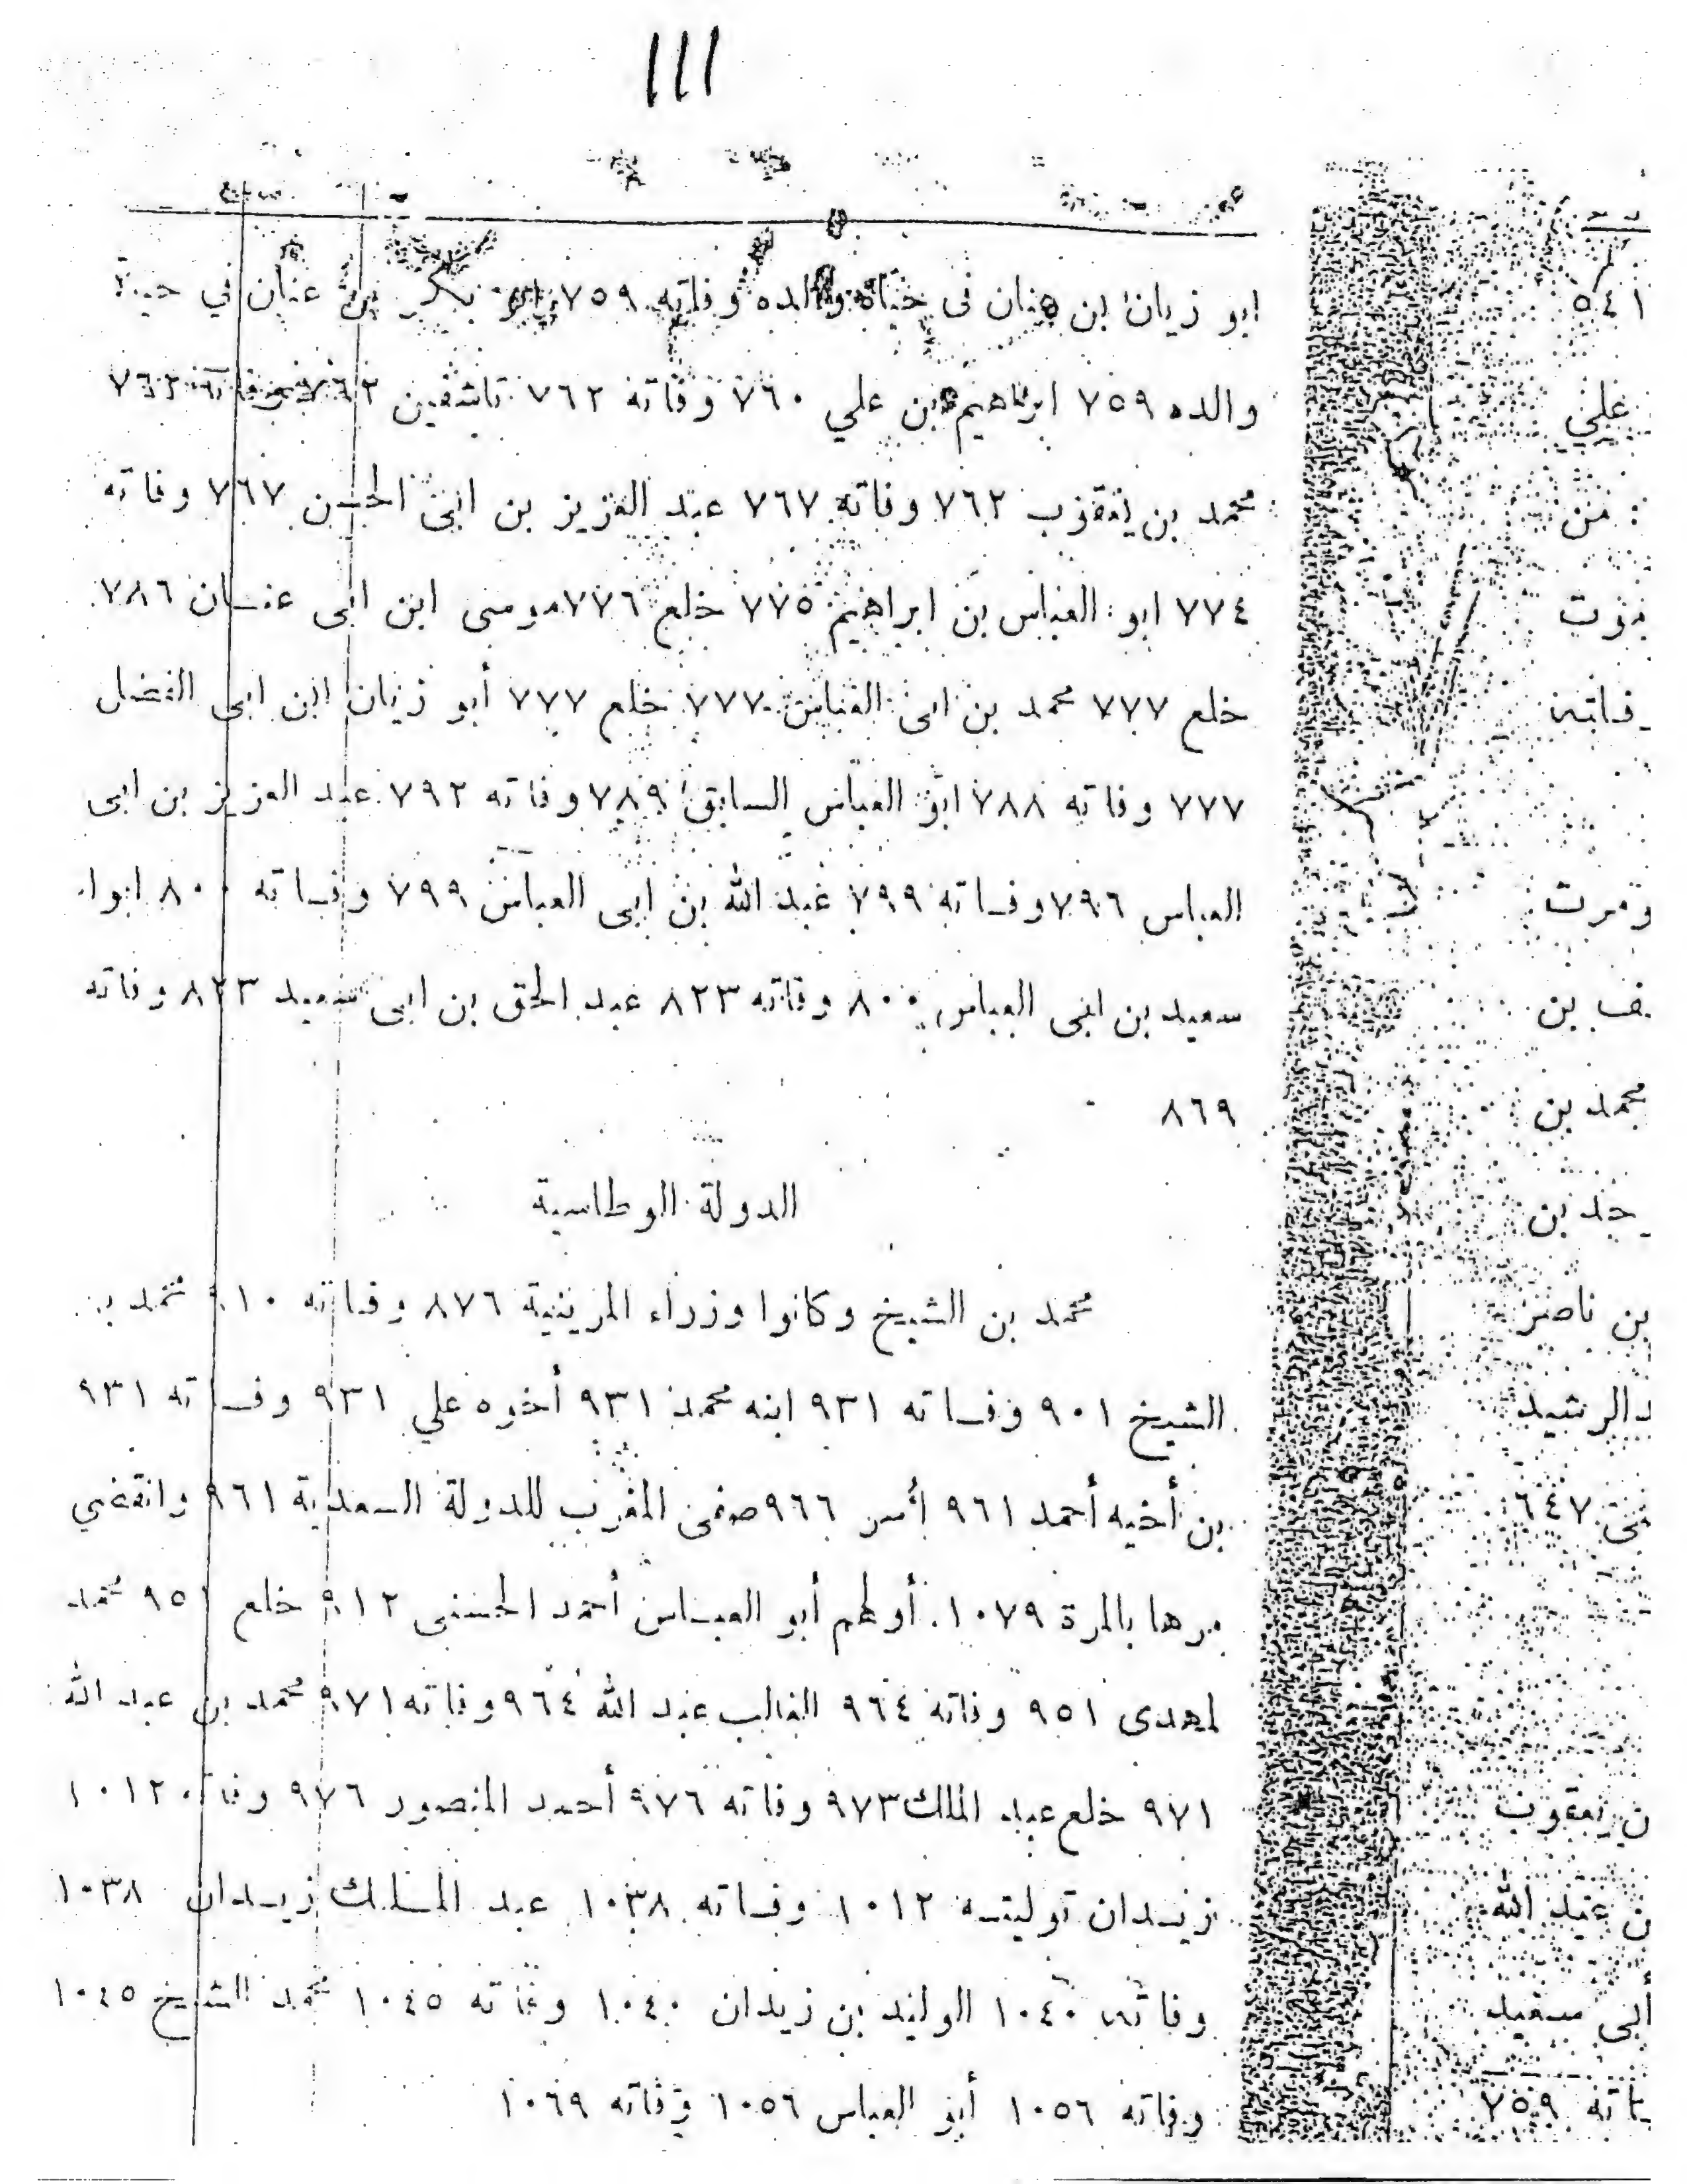 ١١١
ابو زيان ابن عنان فى حياة والده وفاته ٧٥٩ ابو بكر بن عنان في حياة
والده ٧٥٩ ابراهيم بن علي ٧٦٠ وفاته ٧٦٢ تاشفين ٧٦٢ وفاته ٧٦٢
محمد بن يعقوب ٧٦٢ وفاته ٧٦٧ عبد العزيز بن ابى الحسن ٧٦٧ وفاته
٧٧٤ ابو العباس بن ابراهيم ٧٧٥ خلع ٧٧٦ موسى ابن ابى عنان ٧٨٦
خلع ٧٧٧ محمد بن ابى العباس ٧٧٧ خلع ٧٧٧ أبو زيان ابن ابى الفضل
٧٧٧ وفاته ٧٨٨ ابو العباس السابق ٧٨٩ وفاته ٧٩٢ عبد العزيز بن ابى
العباس ٧٩٦ وفاته ٧٩٩ عبد الله بن ابى العباس ٧٩٩ وفاته ٨٠٠ ابوا
سعيد بن ابى العباس ٨٠٠ وفاته ٨٢٣ عبد الحق بن ابى سعيد ٨٢٣ وفاته
٨٦٩
الدولة الوطاسية
محمد بن الشيخ وكانوا وزراء المرينية ٨٧٦ وفاته ٩١٠ محمد بن
الشيخ ٩٠١ وفاته ٩٣١ ابنه محمد ٩٣١ أخوه علي ٩٣١ وفاته ٩٣١
بن أخيه أحمد ٩٦١ أسر ٩٦٦ صفى المغرب للدولة السعدية ٩٦١ وانقضي
مرها بالمرة ١٠٧٩. أولهم أبو العباس أحمد الحسنى ٩١٢ خلع ٩٥١ محمد
لمهدى ٩٥١ وفاته ٩٦٤ الغالب عبد الله ٩٦٤ وفاته ٩٧١ محمد بن عبد الله
٩٧١ خلع عبد الملك ٩٧٣ وفاته ٩٧٦ أحمد المنصور ٩٧٦ وفاته ١٠١٢
زيدان توليته ١٠١٢ وفاته ١٠٣٨ عبد الملك زيدان ١٠٣٨
وفاته ١٠٤٠ الوليد بن زيدان ١٠٤٠ وفاته ١٠٤٥ محمد الشيخ ١٠٤٥
وفاته ١٠٥٦ أبو العباس ١٠٥٦ وفاته ١٠٦٩
٥٤١
علي
من
موت
فاته
ومرت
ف بن
محمد بن
حد بن
بن ناصر
د الرشيد
٦٤٧
ن يعقوب
ن عبد الله
أبى سعيد
اته ٧٥٩